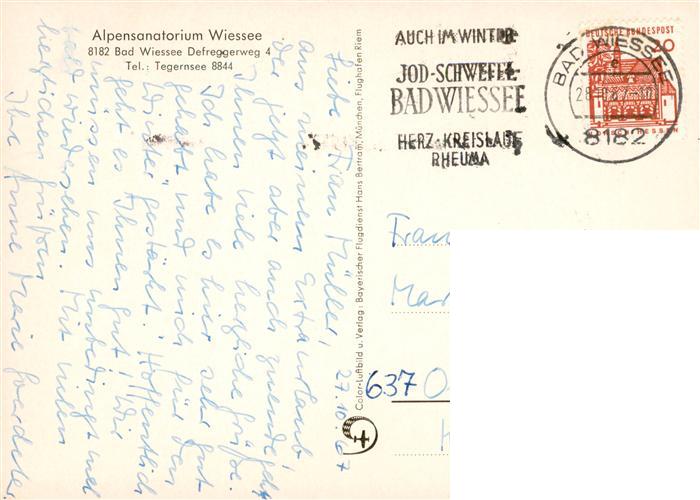 Alpensanatorium Wiessee
8182 Bad Wiessee Defreggerweg 4
Tel.: Tegernsee 8844
27.10.67
Liebe Frau Müller!
Aus meinem Extraurlaub,
der jetzt aber auch zuende geht
Ihnen viele herzliche Grüße.
Ich habe es hier sehr gut
gehabt und mich für den
Winter gestärkt. Hoffentlich
geht es Ihnen gut! Wir
müssen uns unbedingt mal
bald wiedersehen. Mit vielen
herzlichen Grüßen
Ihre Anne Marie
Color-Luftbild u. Verlag: Bayerischer Flugdienst Hans Bertram, München, Flughafen Riem
AUCH IM WINTER
JOD-SCHWEFEL
BAD WIESSEE
HERZ-KREISLAUF
RHEUMA
BAD WIESSEE
8182
DEUTSCHE BUNDESPOST
20
Frau
Mar
637 O